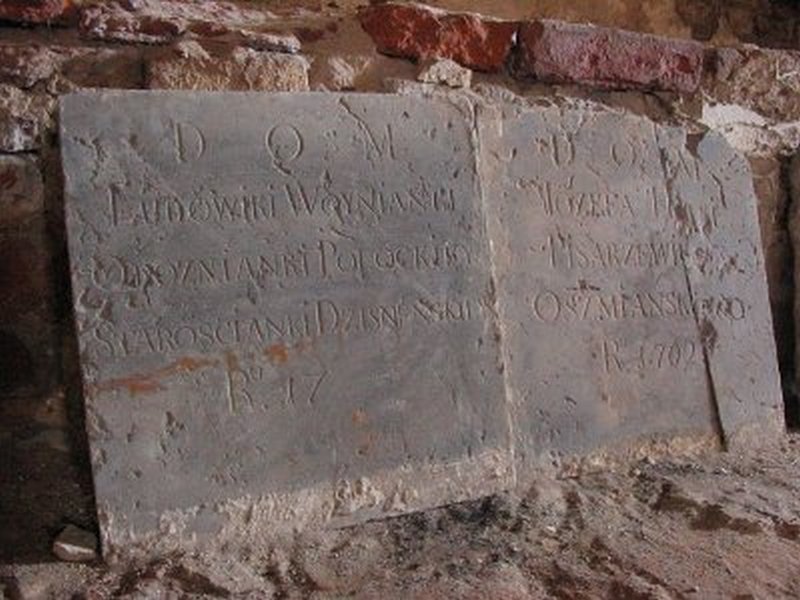 D O M
LUDOWIKI WOYNIANKI
PODOZNIANKI POŁOCKIEY
STAROSCIANKI DZISNENSKIEY
Rº. 17
D O M
IOZEFA
PISARZEWIC
OSZMIANSKIEGO
R. 1702